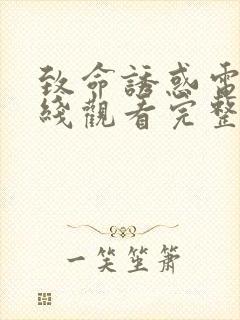 致命誘惑電
綫觀看完整
一笑笙簫